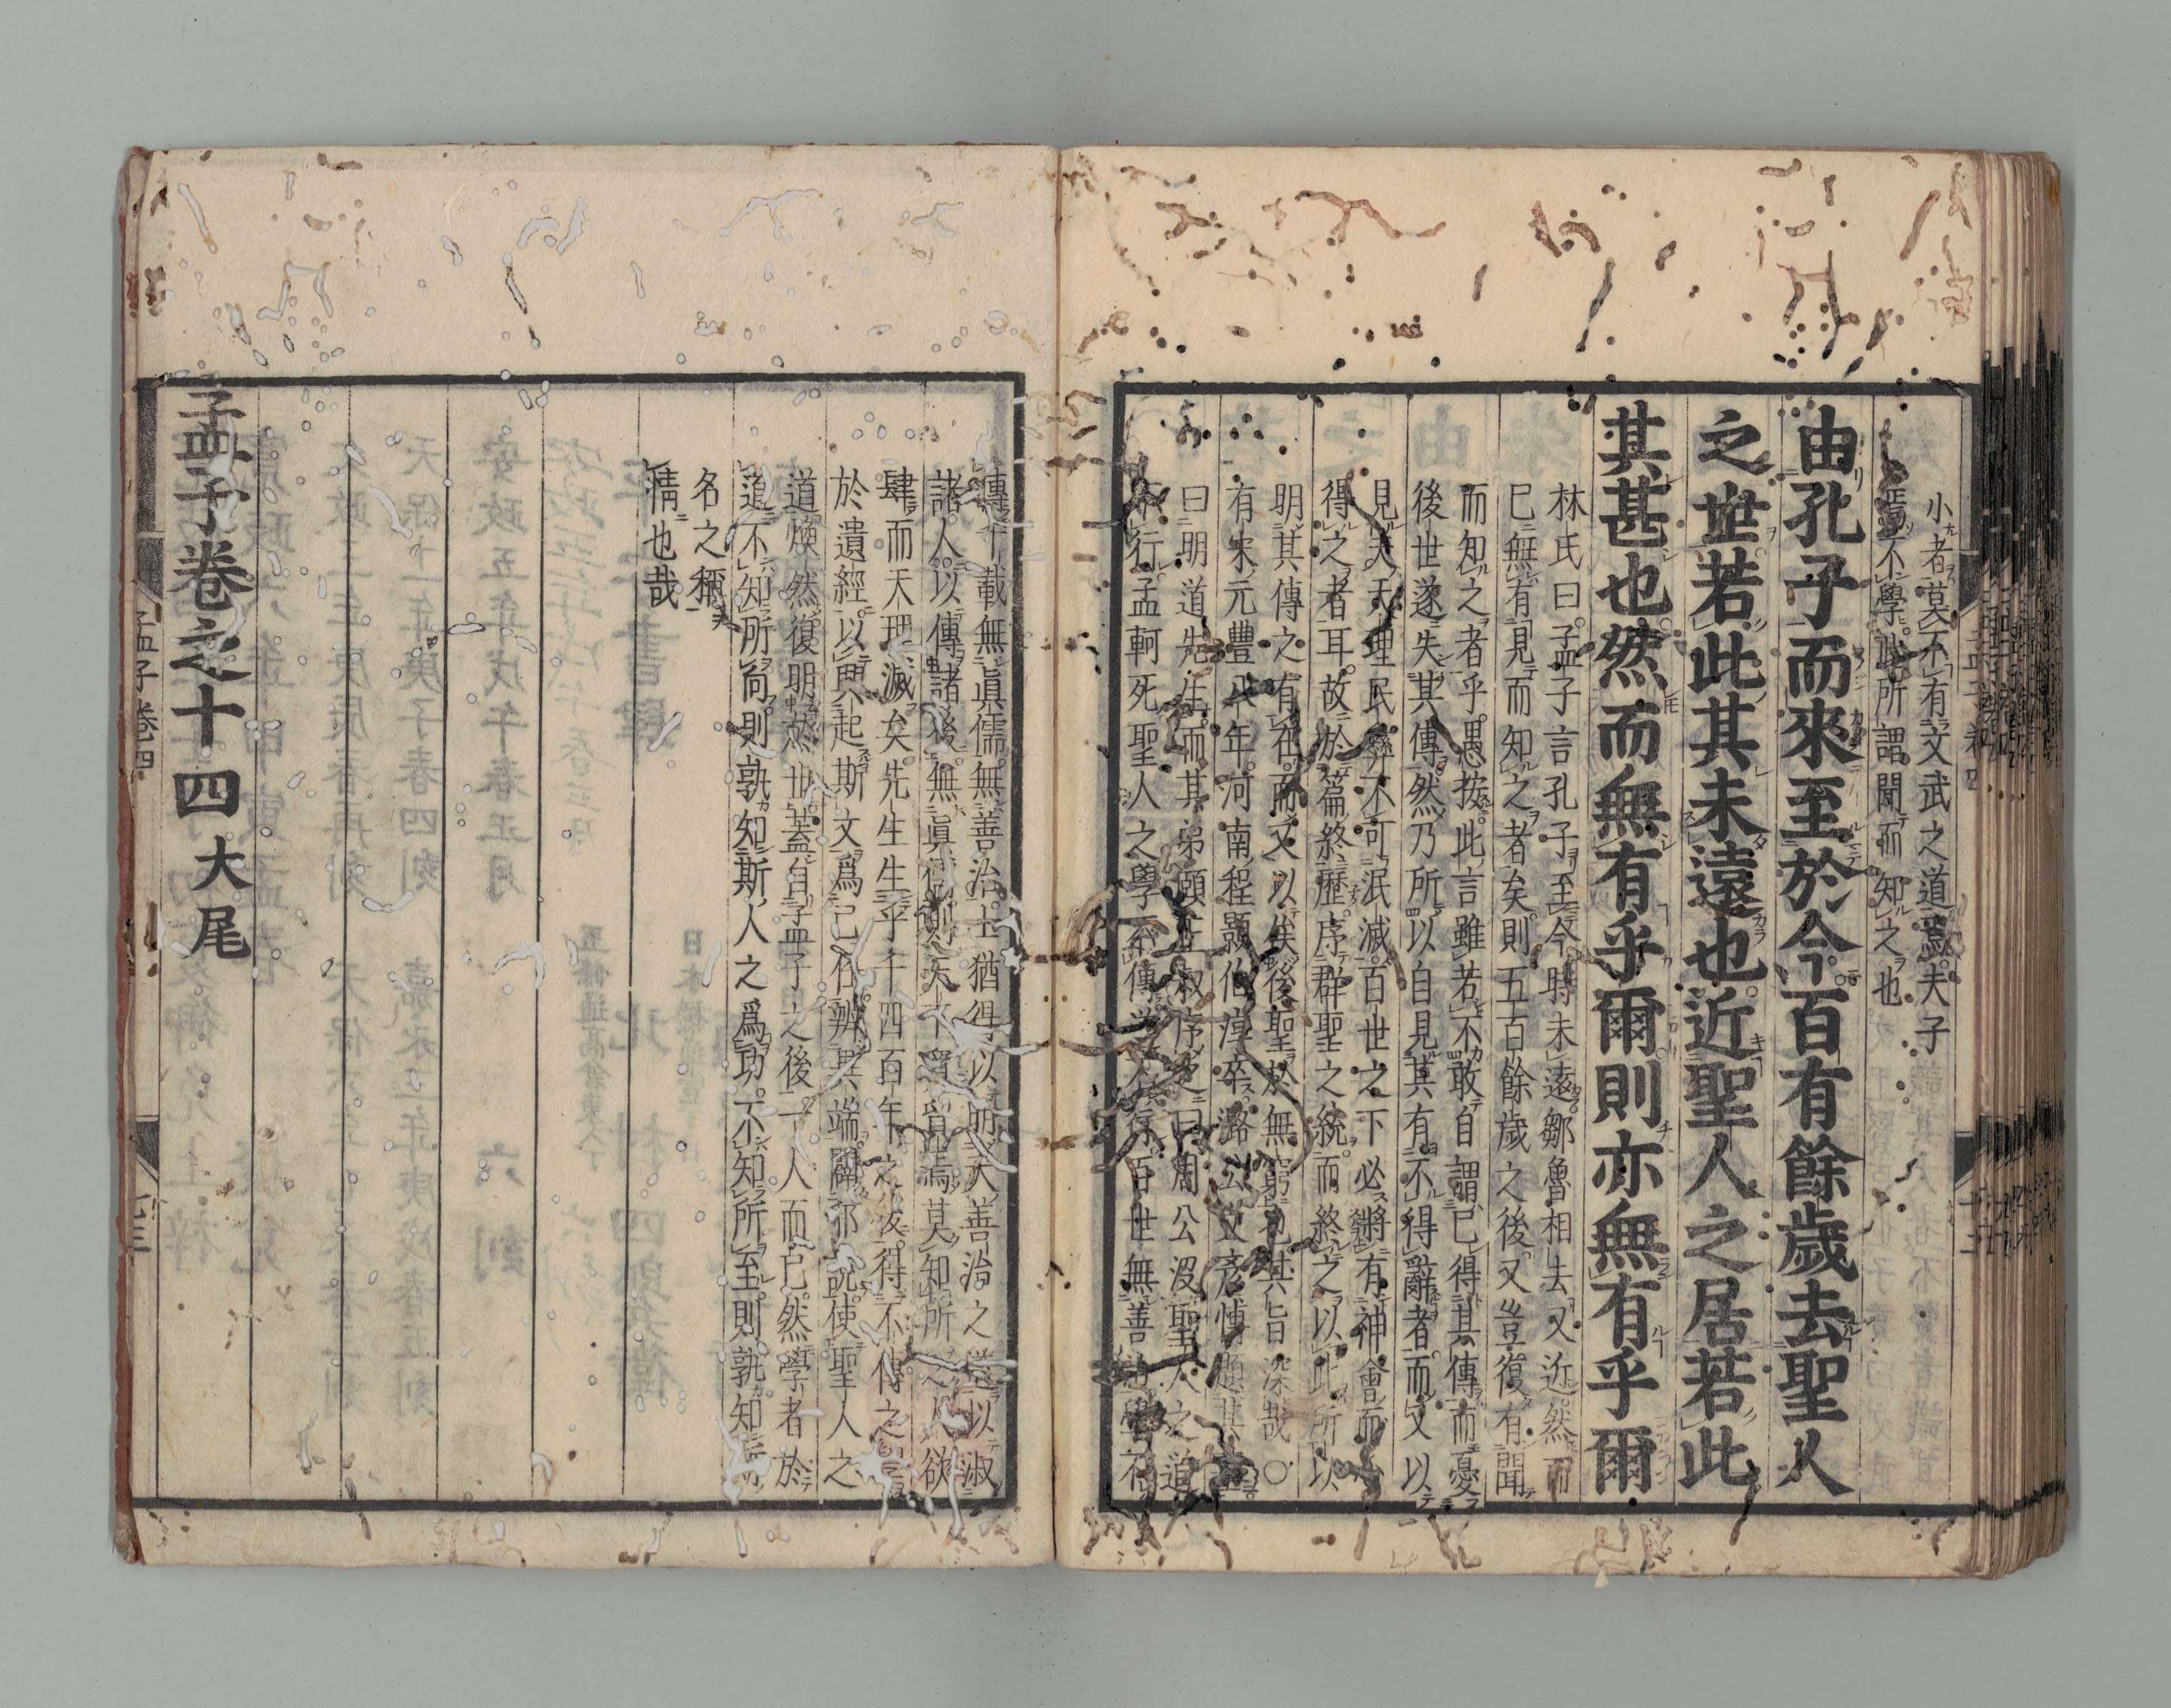 小者莫不有文武之道焉夫子
焉不學此所謂聞而知之也
由孔子而來至於今百有餘歲去聖人
之世若此其未遠也近聖人之居若此
其甚也然而無有乎爾則亦無有乎爾
林氏曰孟子言孔子至今時未遠鄒魯相去又近然而
已無有見而知之者矣則五百餘歲之後又豈復有聞
而知之者乎愚按此言雖若不敢自謂已得其傳而憂
後世遂失其傳然乃所以自見其有不得辭者而又以
見夫天理民彝不可泯滅百世之下必將有神會而心
得之者耳故於篇終歷序群聖之統而終之以此所以
明其傳之有在而又以俟後聖於無窮也其旨深哉○
有宋元豐八年河南程顥伯淳卒潞公文彥博題其墓
曰明道先生而其弟頤正叔序之曰周公沒聖人之道
不行孟軻死聖人之學不傳道不行百世無善治學不
傳千載無眞儒無善治士猶得以明夫善治之道以淑
諸人以傳諸後無眞儒則天下貿貿焉莫知所之人欲
肆而天理滅矣先生生乎千四百年之後得不傳之學
於遺經以興起斯文爲己任辨異端闢邪說使聖人之
道煥然復明於世蓋自孟子之後一人而已然學者於
道不知所向則孰知斯人之爲功不知所至則孰知斯
名之稱
情也哉
孟子卷之十四大尾
孟子卷四